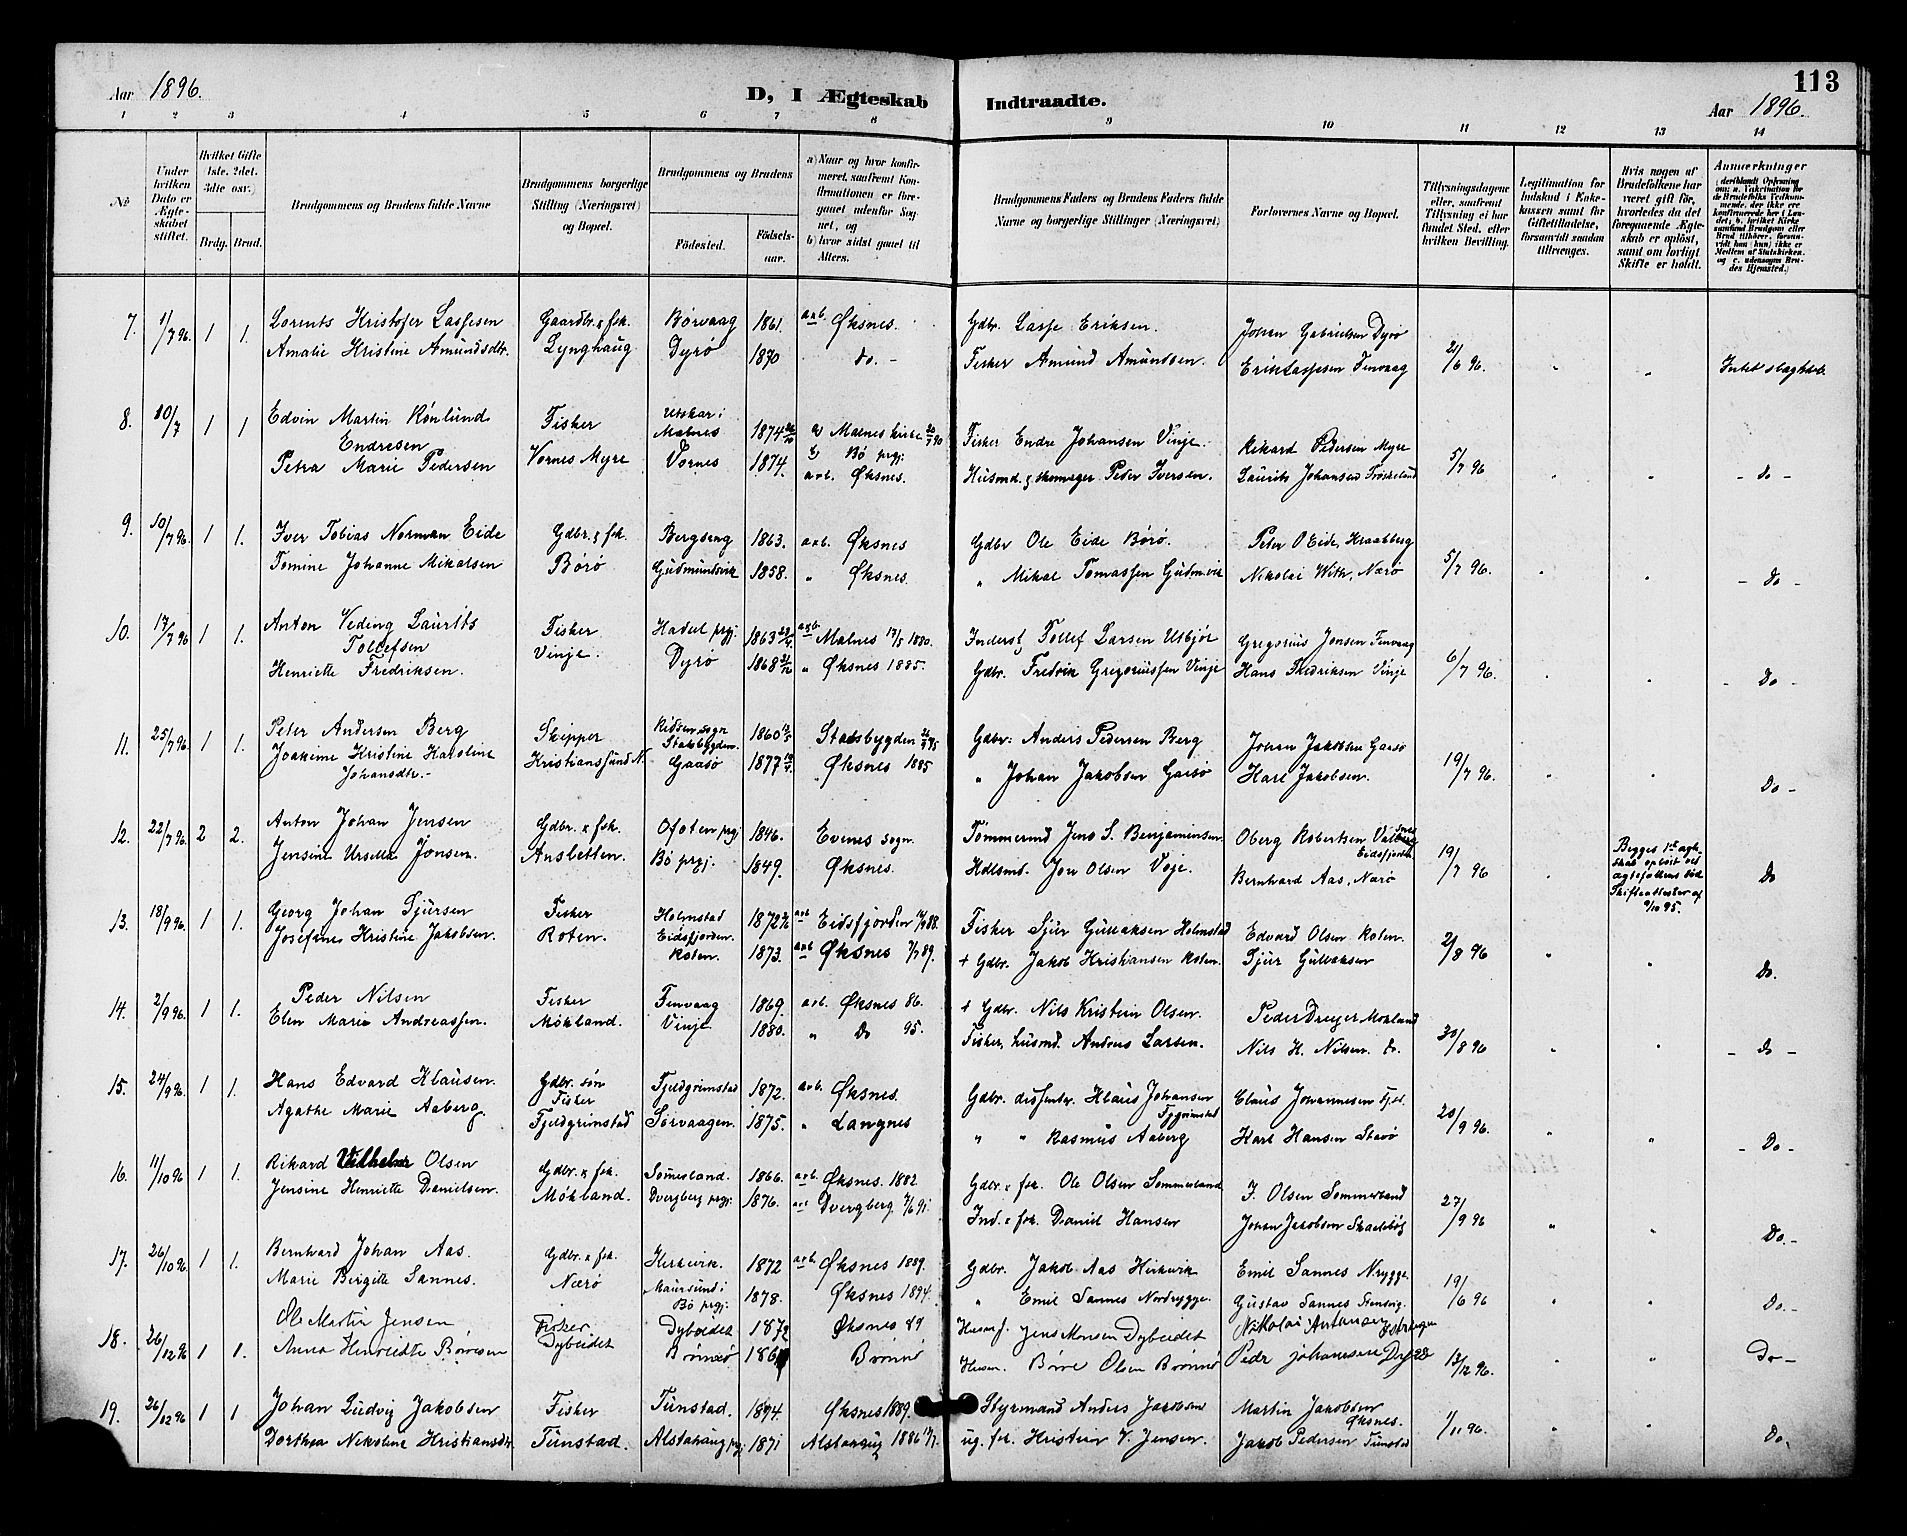 Aar 1896.
D, I Ægteskab Indtraadte.
113
Aar 1896.
1 2 3 4 5 6 7 8 9 10 11 12 13 14
No
Under hvilken Dato er Ægteskabet stiftet.
Hvilket Gifte 1ste, 2det, 3die osv.)
Brdg. Brud.
Brudgommens og Brudens fulde Navne
Brudgommens borgerlige Stilling (Næringsvei) og Bopæl.
Brudgommens og Brudens
Fødested. Fødselsaar.
a) Naar og hvor konfirmeret, saafremt Konfirmationen er foregaaet udenfor Sognet, og b) hvor sidst gaaet til Alters.
Brudgommens Faders og Brudens Faders fulde Navne og borgerlige Stillinger (Næringsvei)
Forlovernes Navne og Bopæl.
Tillysningsdagene eller, saafremt Tillysning ei har fundet Sted, efter hvilken Bevilling.
Legitimation for Indskud i Enkekassen samt for Giftetilladelse, forsaavidt saadan tiltrænges.
Hvis nogen af Brudefolkene har været gift før, hvorledes da det foregaaende Ægteskab er opløst, samt om lovligt Skifte er holdt.
Anmærkninger
7. 1/7 96. 1 1. Lorents Kristofer Lassesen Gaardbr. & fsk. Børvaag 1861. a&b. Øksnes. Gdbr. Lasse Eriksen. Johan Gabrielsen Dyrø
Amalie Kristine Amundsdtr. Lynghaug Dyrø 1870 do. - Fisker Amund Amundsen. Erik Lassesen Finvaag 21/6 96. " " Intet slægtsk.
8. 10/7 1 1 Edvin Martin Rønlund Fisker Utskar i Malnes 1874 a) Malnes kirke Fisker Endre Johansen Vinje. Rikard Pedersen Myre
Endresen b) Bø prgj:
Petra Marie Pedersen Vornes Myre Vornes 1874. a&b. Øksnes. Husmd. & skomager Peter Iversen. Laurits Johansen Frøskeland 5/7 96 " " - do -
9. 10/7 96. 1 1. Iver Tobias Norman Eide Gdbr. & fsk. Bergseng 1863. a&b. Øksnes Gdbr Ole Eide Børø. Peter O Eide, Kraaberg
Tomine Johanne Mikalsen Børø Gudmundsvik 1858. " Øksnes. " Mikal Tomassen Gudm.vik Nikolai With, Nærø 5/7 96. " " - do -
10. 17/7 96 1 1. Anton Veding Laurits Fisker Hadsel prgj: 1863 a&b. Malnes 17/5 1880. Inderst, Tollef Larsen Utbjør Gregorius Jensen Finvaag
Tollefsen
Henriette Fredriksen. Vinje. Dyrø 1868 " Øksnes 1885. Gdbr. Fredrik Gregoriussen Vinje Hans Fredriksen Vinje 6/7 96. " " - Do -
11. 25/7 96. 1 1. Peter Andersen Berg Skipper Ridsem sogn Stadsbygden. 1860 Stadsbygden Gdbr: Anders Pedersen Berg Johan Jakobsen Gaasø
Joakime Kristine Karoline Kristianssund N. Gaasø 1877 Øksnes 1885 " Johan Jakobsen Gaasø Karl Jakobsen. 19/7 96. " " Do -
Johansdtr. -
12. 22/7 96 2 2. Anton Johan Jensen Gdbr. & fsk. Ofoten prgj 1846. Evenes sogn. Tømmermd Jens S. Benjaminsen Oberg Robertsen Eidsfjorden
Jensine Ursella Jonsen. Ansletten. Bø prgj. 1849. Øksnes. Hdlsmd. Jon Olsen Voje. Bernhard Aas, Nærø 19/7 96 " Begges 1ste ægteskab opløst ved ægtefællens død Skifteattester af 9/10 95. Do
13. 18/9 96. 1 1. Georg Johan Sjursen Fisker Holmstad Eidsfjorden. 1872 a&b Eidsfjorden Fisker Sjur Gullaksen Holmstad Edvard Olsen Roten.
Josefines Kristine Jakobsen. Roten. Roten. 1873. a&b Øksnes 7/7 89. + Gdbr. Jakob Kristiansen Roten. Sjur Gullaksen 2/8 96 " " Do.
14. 2/9 96. 1 1. Peder Nilsen Fisker Finvaag 1869. a&b. Øksnes 86. + Gdbr. Nils Kristein Olsen. Peder Dreyer Mokland
Elen Marie Andreassen. Mökland. Vinje 1880. " Do 95. Fisker, husmd. Andreas Larsen. Nils H. Nilsen do. 30/8 96 " " - do -
15. 24/9 96. 1 1. Hans Edvard Klausen. Gdbr. søn Fisker Fjeldgrimstad 1872. a&b. Øksnes. Gdbr. dissenter. Klaus Johansen Claus Johannesen Fjel.
Agathe Marie Aaberg. Fjeldgrimstad Sørvaagen. 1875. " Langnes " " Rasmus Aaberg Karl Hansen Stavø 20/9 96. " " - Do -
16. 11/10 96 1 1. Rikard Vilhelm Olsen Gdbr. & fsk. Somerland. 1866. a&b. Øksnes. 1882 Gdbr. & fsk. Ole Olsen Sommerland J. Olsen Sommerland
Jensine Henriette Danielsen. Mökland. Dvergberg prgj: 1876. a&b Dvergberg 7/6 91. Ind. & fsk. Daniel Hansen Johan Jacobsen Skadebøg 27/9 96 " " Do. -
17. 26/10 96. 1 1. Bernhard Johan Aas. Gdbr. & fsk. Herkevik. 1872 a&b Øksnes 1889. Gdbr. Jakob Aas Hirkevik Emil Sannes N.rygge
Marie Birgitte Sannes. Nærø Maursund i Bø prgj: 1878. Øksnes 1894. " Emil Sannes Nordrygge. Gustav Sannes Stensvig. 19/6 96 " " Do. -
18. 26/12 96 1 1. Ole Martin Jensen Fisker Dybeidet 1872 Øksnes 89 Husm f. Jens Monsen Dybeidet Nikolai Antonsen
Anna Henriedte Børresen Dybeidet Brønnø Brønnø Husm. Børre Olsen Brønnø Peder Johannesen 13/12 96. " " Do -
19. 26/12 96 1 1 Johan Ludvig Jakobsen Fisker Tunstad. Øksnes 1889. Styrmand Anders Jacobsen Martin Jakobsen Øksnes.
Dorthea Nikoline Kristiansdtr Tunstad. Alstahaug prgj 1871 Alstahaug 1886 ug. fsk. Kristian V. Jensen. Jakob Pedersen Tunstad 1/11 96. " " Do.